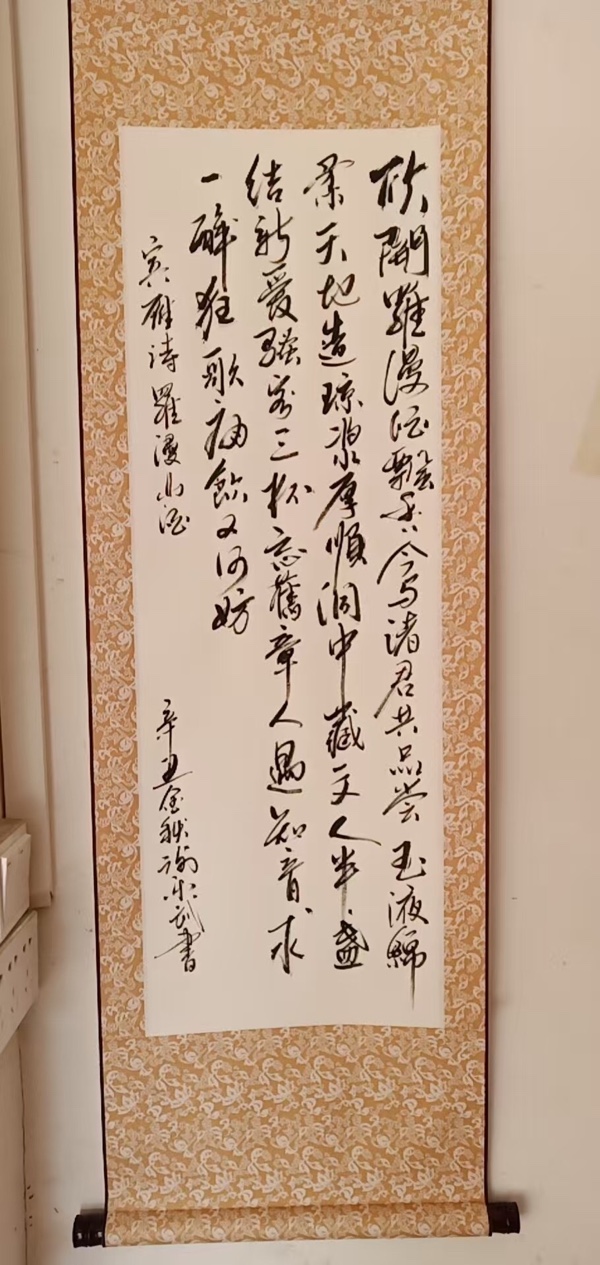 欣開羅漫酒飄香今與諸君共品嘗玉液綿
柔天地造瓊漿厚順洞中藏文人半盞
結新愛騷客三杯忘舊章人遇知音求
一醉狂歌痛飲又何妨
賓雁詩羅漫山酒
辛丑金秋謝永武書